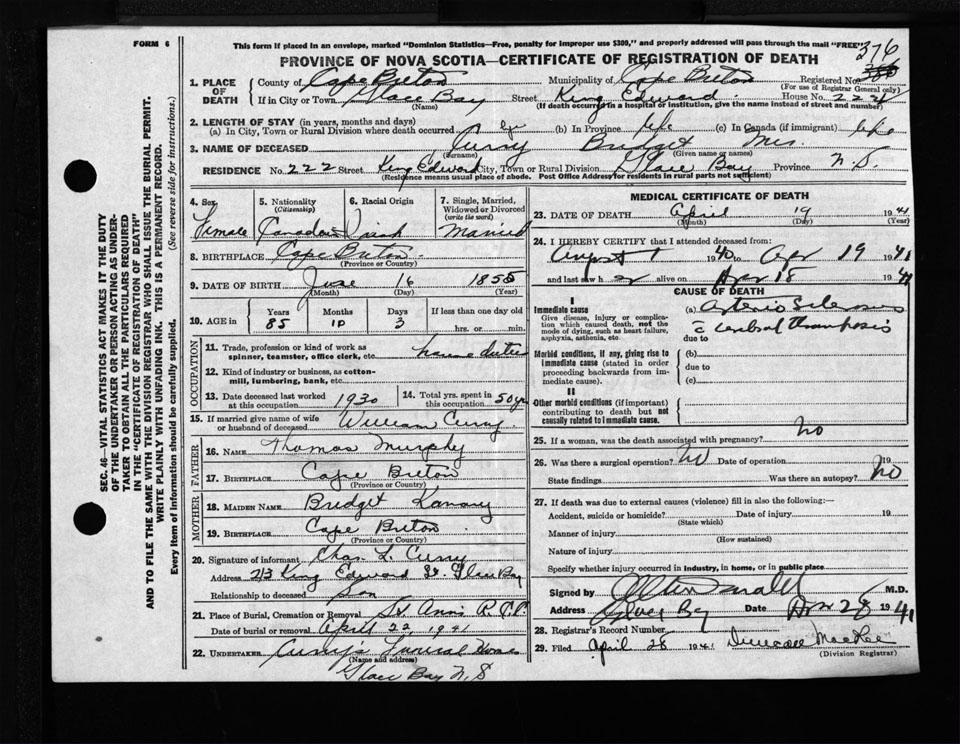 FORM 6
This form if placed in an envelope, marked "Dominion Statistics—Free, penalty for improper use $300," and properly addressed will pass through the mail "FREE"
376
PROVINCE OF NOVA SCOTIA—CERTIFICATE OF REGISTRATION OF DEATH
1. PLACE OF DEATH
County of Cape Breton Municipality of Cape Breton Registered No. 380
(For use of Registrar General only)
If in City or Town Glace Bay Street King Edward House No. 222
(Name) (If death occurred in a hospital or institution, give the name instead of street and number)
2. LENGTH OF STAY (in years, months and days)
(a) In City, Town or Rural Division where death occurred (b) In Province life (c) In Canada (if immigrant) life
3. NAME OF DECEASED Curry Bridget Mrs.
(Surname) (Given name or names)
RESIDENCE No. 222 Street King Edward City, Town or Rural Division Glace Bay Province N.S.
(Residence means usual place of abode. Post Office Address for residents in rural parts not sufficient)
4. Sex Female
5. Nationality (Citizenship) Canadian
6. Racial Origin Irish
7. Single, Married, Widowed or Divorced (write the word) Married
8. BIRTHPLACE Cape Breton
(Province or Country)
9. DATE OF BIRTH June 16 1855
(Month) (Day) (Year)
10. AGE in
Years Months Days If less than one day old
85 10 3 hrs. or min.
OCCUPATION
11. Trade, profession or kind of work as spinner, teamster, office clerk, etc. home duties
12. Kind of industry or business, as cotton-mill, lumbering, bank, etc.
13. Date deceased last worked at this occupation 1930
14. Total yrs. spent in this occupation 50 yrs
15. If married give name of wife or husband of deceased William Curry
FATHER
16. NAME Thomas Murphy
17. BIRTHPLACE Cape Breton
(Province or Country)
MOTHER
18. MAIDEN NAME Bridget
19. BIRTHPLACE Cape Breton
(Province or Country)
20. Signature of informant Chas. L. Curry
Address 213 King Edward St. Glace Bay
Relationship to deceased Son
21. Place of Burial, Cremation or Removal St. Anns R.C.C.
Date of burial or removal April 22, 1941
22. UNDERTAKER Currys Funeral Home
(Name and address)
Glace Bay N.S
MEDICAL CERTIFICATE OF DEATH
23. DATE OF DEATH April 19 1941
(Month) (Day)
24. I HEREBY CERTIFY that I attended deceased from:
August 1 1940 to Apr 19 1941
and last saw h er alive on Apr 18 1941
CAUSE OF DEATH
I
Immediate cause
Give disease, injury or complication which caused death, not the mode of dying, such as heart failure, asphyxia, asthenia, etc.
(a) Arterio Sclerosis
c̄ cerebral thrombosis
due to
Morbid conditions, if any, giving rise to immediate cause (stated in order proceeding backwards from immediate cause).
(b)
due to
(c)
II
Other morbid conditions (if important) contributing to death but not causally related to immediate cause.
25. If a woman, was the death associated with pregnancy? No
26. Was there a surgical operation? No Date of operation 19
State findings Was there an autopsy? No
27. If death was due to external causes (violence) fill in also the following:—
Accident, suicide or homicide? Date of injury 19
(State which)
Manner of injury
(How sustained)
Nature of injury
Specify whether injury occurred in industry, in home, or in public place
Signed by M.D.
Address Glace Bay Date Apr 28 1941
28. Registrar's Record Number
29. Filed April 28 1941 MacRae
(Division Registrar)
SEC. 46—VITAL STATISTICS ACT MAKES IT THE DUTY
OF THE UNDERTAKER OR PERSON ACTING AS UNDER-
TAKER TO OBTAIN ALL THE PARTICULARS REQUIRED
IN THE "CERTIFICATE OF REGISTRATION OF DEATH"
AND TO FILE THE SAME WITH THE DIVISION REGISTRAR WHO SHALL ISSUE THE BURIAL PERMIT.
WRITE PLAINLY WITH UNFADING INK. THIS IS A PERMANENT RECORD.
Every item of information should be carefully supplied. (See reverse side for instructions.)